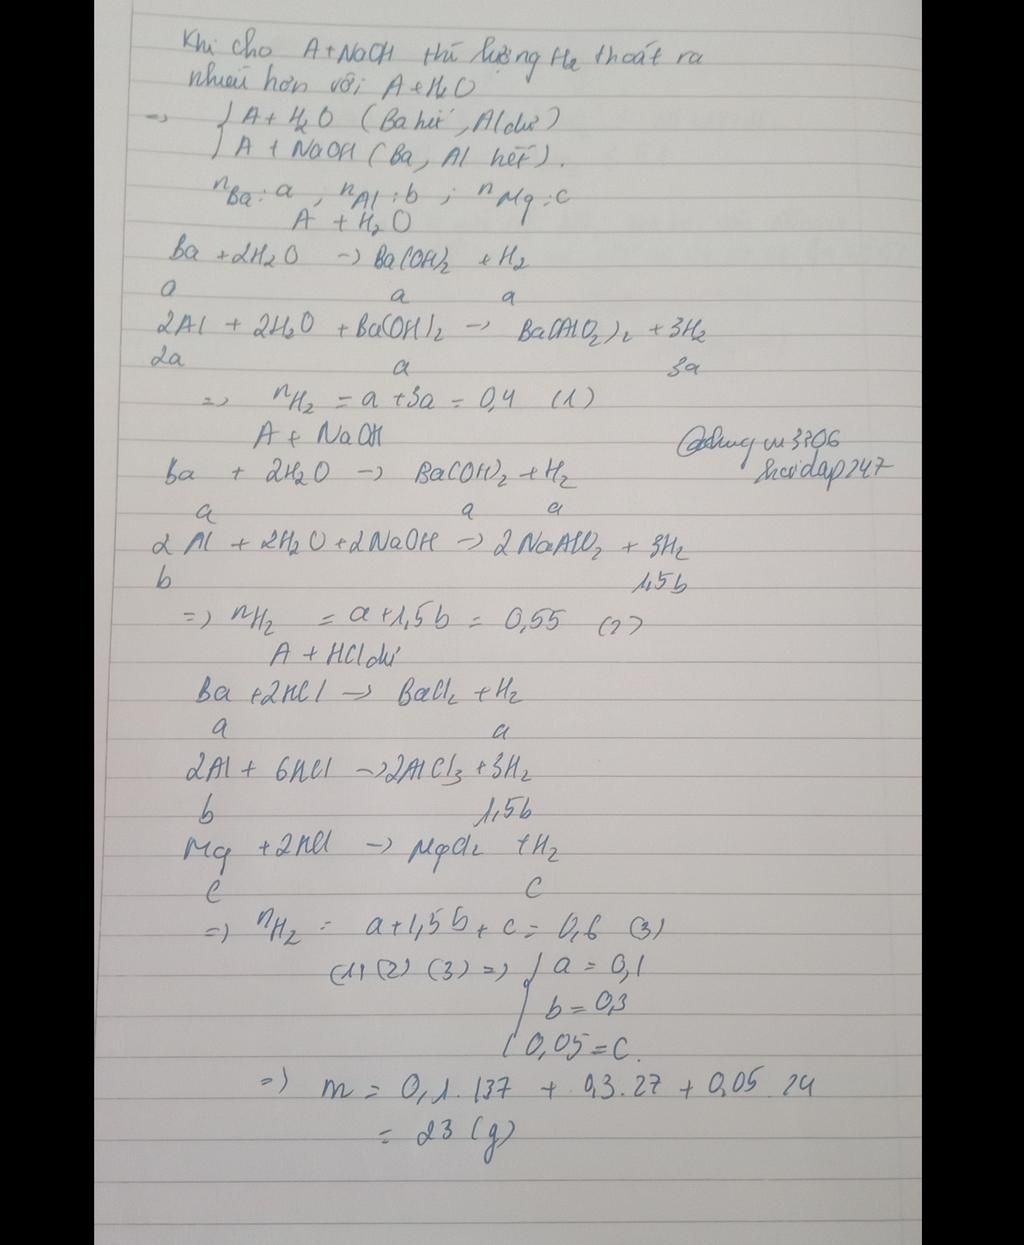 Khi cho A+NaOH thì lượng H₂ thoát ra
nhiều hơn với A+H₂O
-> { A + H₂O (Ba hết, Al dư)
{ A + NaOH (Ba, Al hết).
nBa: a, nAl: b ; nMg: c
A + H₂O
Ba + 2H₂O -> Ba(OH)₂ + H₂
a a a
2Al + 2H₂O + Ba(OH)₂ -> Ba(AlO₂)₂ + 3H₂
2a a 3a
=> nH₂ = a + 3a = 0,4 (1)
A + NaOH
Ba + 2H₂O -> Ba(OH)₂ + H₂
a a a
2Al + 2H₂O + 2NaOH -> 2NaAlO₂ + 3H₂
b 1,5b
=> nH₂ = a+1,5b = 0,55 (2)
A + HCl dư
Ba + 2HCl -> BaCl₂ + H₂
a a
2Al + 6HCl -> 2AlCl₃ + 3H₂
b 1,5b
Mg + 2HCl -> MgCl₂ + H₂
c c
=> nH₂ = a+1,5b + c = 0,6 (3)
(1) (2) (3) => { a = 0,1
{ b = 0,3
{ 0,05 = c.
=> m = 0,1.137 + 0,3.27 + 0,05.24
= 23 (g)
hoidap247